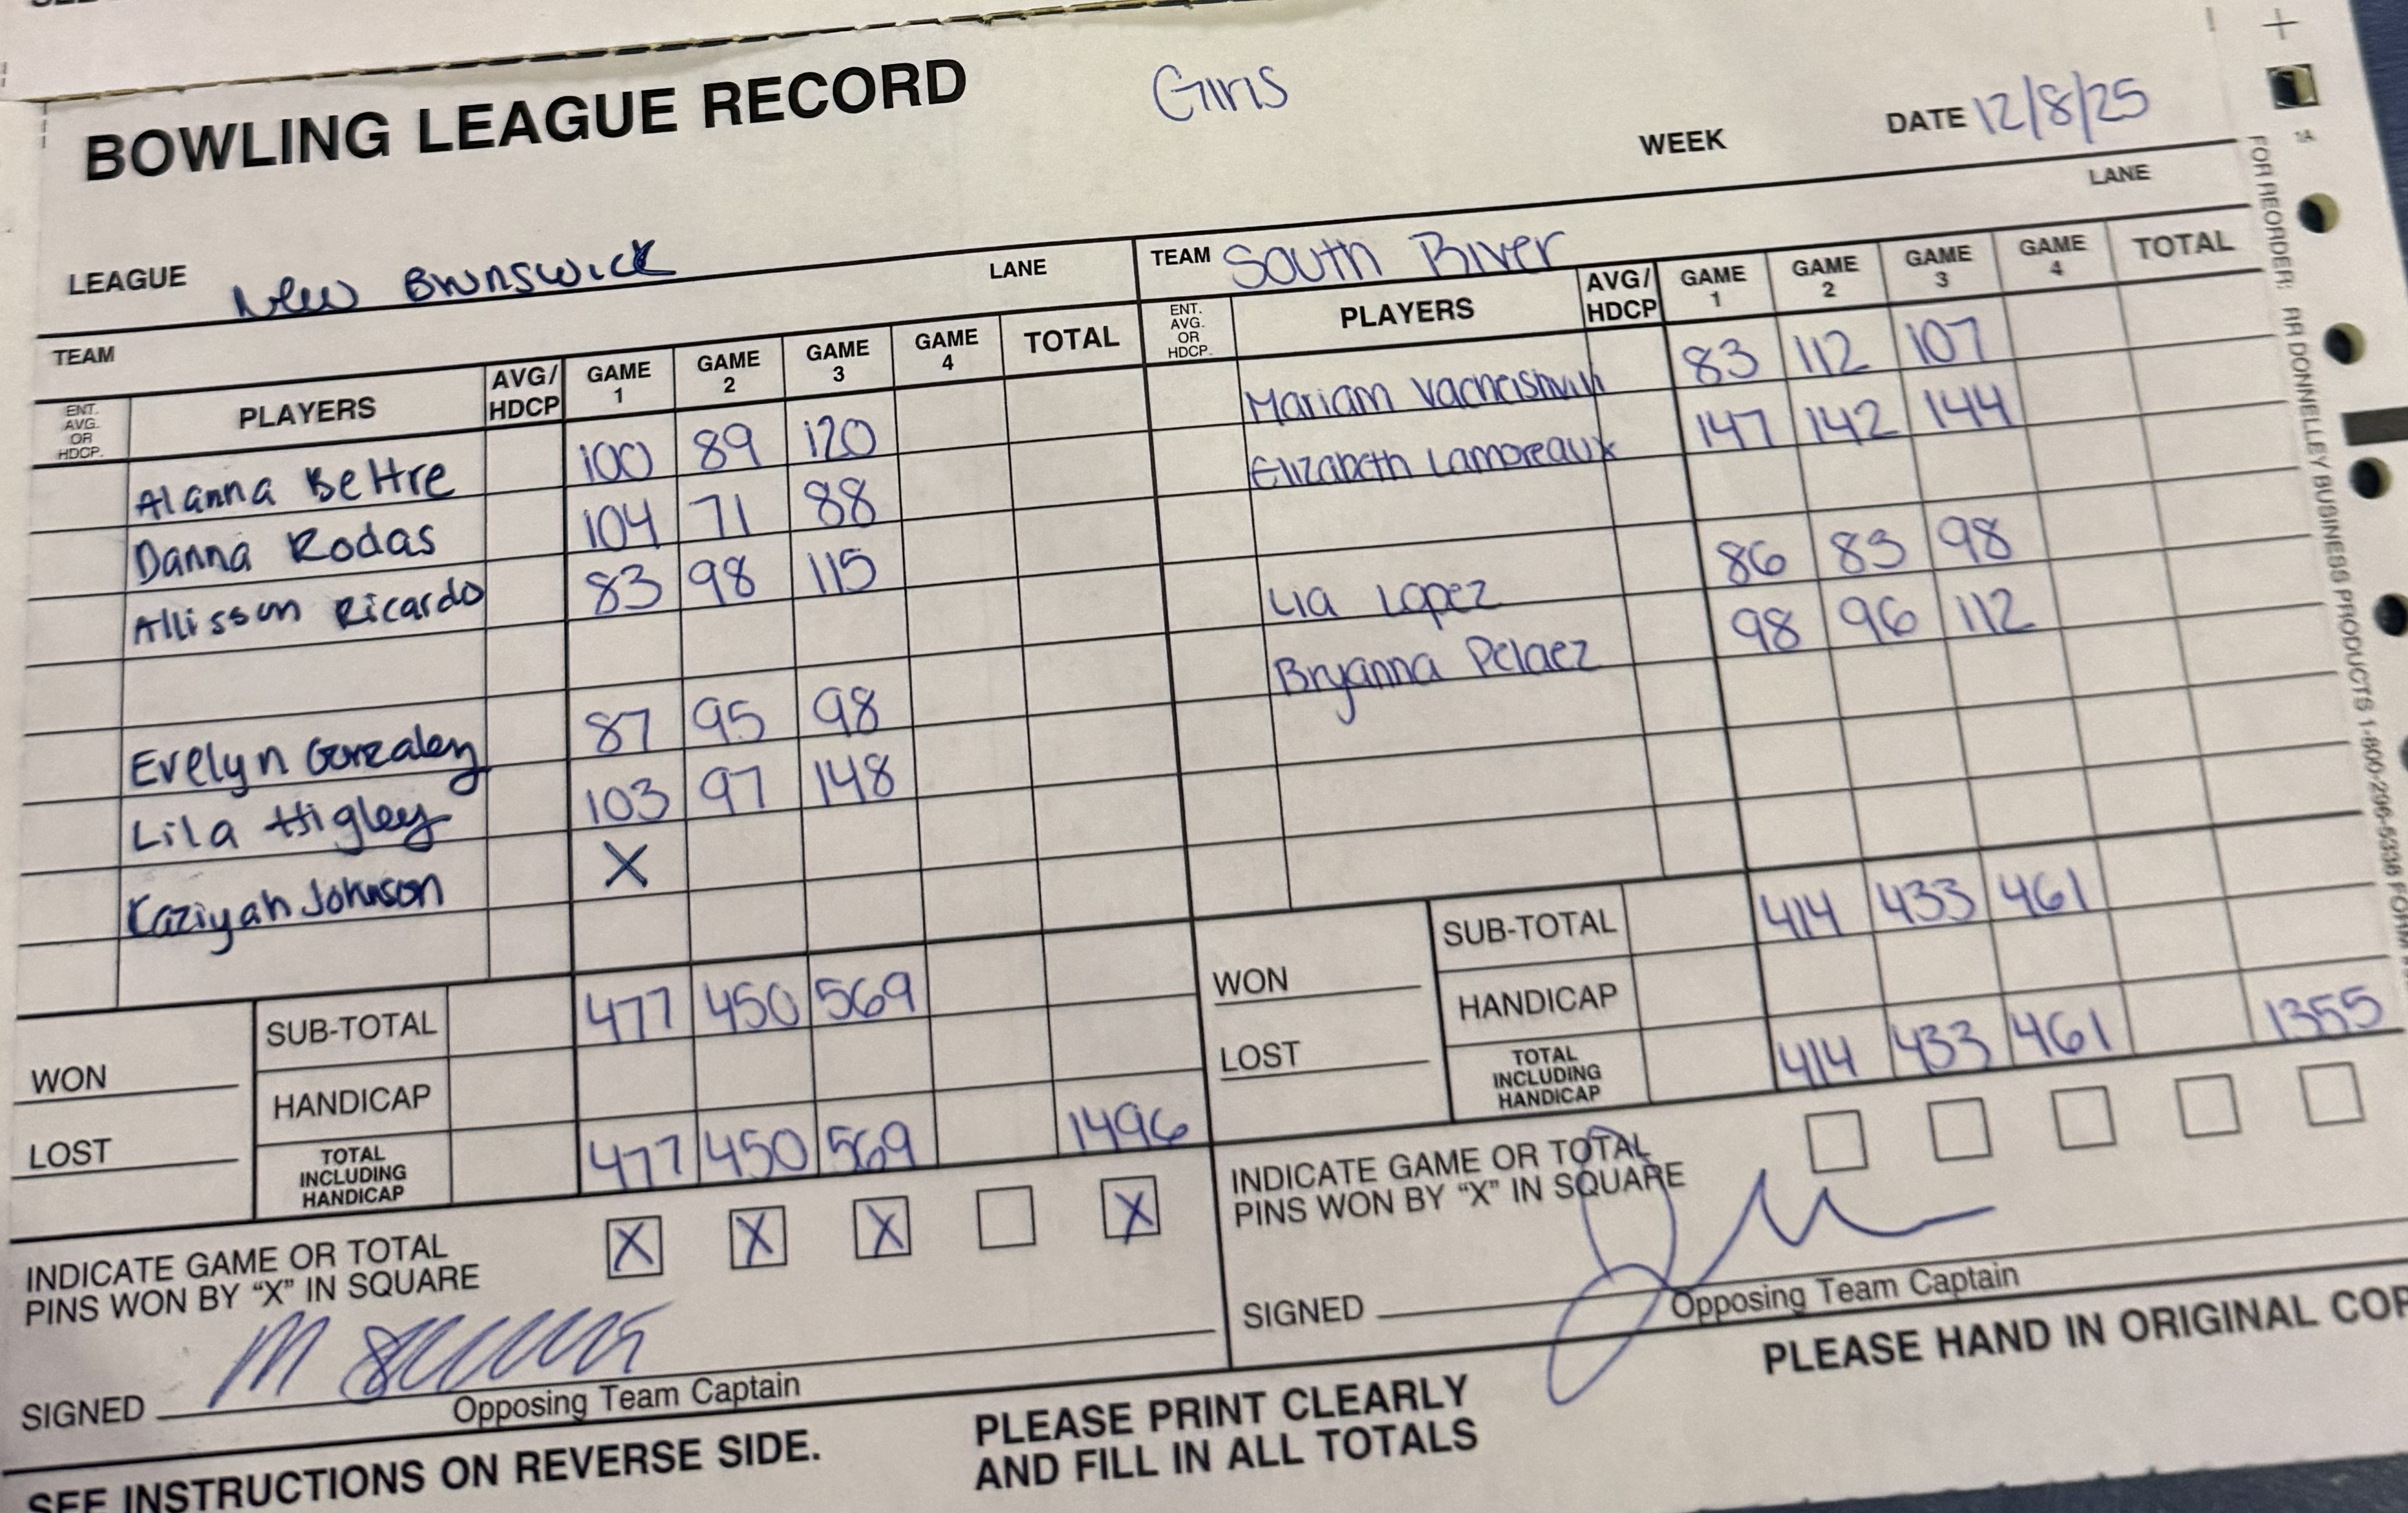 BOWLING LEAGUE RECORD
Girls
WEEK
DATE 12/8/25
LEAGUE New Brunswick
LANE
TEAM South River
LANE
TEAM
ENT. AVG. OR HDCP.
PLAYERS
AVG/ HDCP
GAME 1
GAME 2
GAME 3
GAME 4
TOTAL
Alanna Beltre 100 89 120
Danna Rodas 104 71 88
Allisson Ricardo 83 98 115
Evelyn Gonzalez 87 95 98
Lila Higley 103 97 148
Kaziyah Johnson X
WON
LOST
SUB-TOTAL 477 450 569
HANDICAP
TOTAL INCLUDING HANDICAP 477 450 569 1496
INDICATE GAME OR TOTAL
PINS WON BY "X" IN SQUARE
X X X X
SIGNED
Opposing Team Captain
ENT. AVG. OR HDCP.
PLAYERS
AVG/ HDCP
GAME 1
GAME 2
GAME 3
GAME 4
TOTAL
Mariam 83 112 107
Elizabeth Lamoreaux 147 142 144
Lia Lopez 86 83 98
Bryanna Pelaez 98 96 112
WON
LOST
SUB-TOTAL 414 433 461
HANDICAP
TOTAL INCLUDING HANDICAP 414 433 461 1355
INDICATE GAME OR TOTAL
PINS WON BY "X" IN SQUARE
SIGNED
Opposing Team Captain
SEE INSTRUCTIONS ON REVERSE SIDE.
PLEASE PRINT CLEARLY
AND FILL IN ALL TOTALS
PLEASE HAND IN ORIGINAL COP
1A
FOR REORDER: RR DONNELLEY BUSINESS PRODUCTS 1-800-296-5336